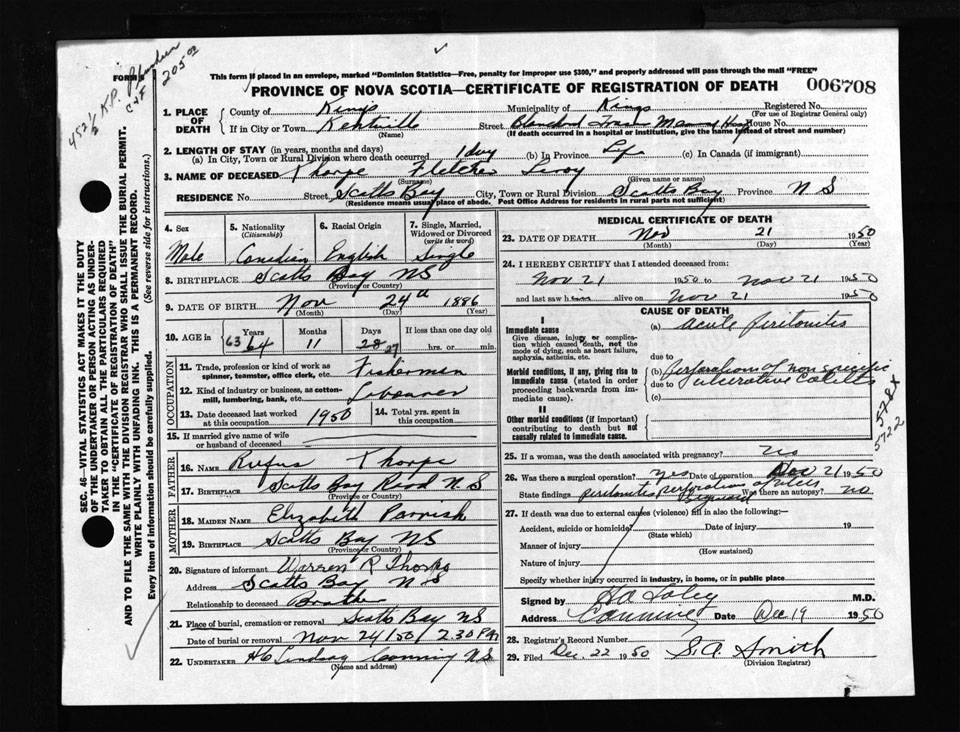 This form if placed in an envelope, marked "Dominion Statistics—Free, penalty for improper use $300," and properly addressed will pass through the mail "FREE"
FORM
K.P.
205 00
PROVINCE OF NOVA SCOTIA—CERTIFICATE OF REGISTRATION OF DEATH 006708
1. PLACE OF DEATH County of Kings Municipality of Kings Registered No.
(For use of Registrar General only)
If in City or Town Kentville Street Blanchard Fraser Mem Hosp House No.
(Name) (If death occurred in a hospital or institution, give the name instead of street and number)
2. LENGTH OF STAY (in years, months and days)
(a) In City, Town or Rural Division where death occurred 1 day (b) In Province Life (c) In Canada (if immigrant)
3. NAME OF DECEASED Thorpe Fletcher Leroy
(Surname) (Given name or names)
RESIDENCE No. Street Scotts Bay City, Town or Rural Division Scotts Bay Province N S
(Residence means usual place of abode. Post Office Address for residents in rural parts not sufficient)
4. Sex 5. Nationality (Citizenship) 6. Racial Origin 7. Single, Married, Widowed or Divorced (write the word)
Male Canadian English Single
8. BIRTHPLACE Scotts Bay NS
(Province or Country)
9. DATE OF BIRTH Nov 24th 1886
(Month) (Day) (Year)
10. AGE in Years Months Days If less than one day old
63 64 11 28 27 hrs. or min.
OCCUPATION
11. Trade, profession or kind of work as spinner, teamster, office clerk, etc. Fisherman
12. Kind of industry or business, as cotton-mill, lumbering, bank, etc.
13. Date deceased last worked at this occupation 1950 14. Total yrs. spent in this occupation
15. If married give name of wife or husband of deceased
FATHER
16. NAME Rufus Thorpe
17. BIRTHPLACE Scotts Bay Road N.S
(Province or Country)
MOTHER
18. MAIDEN NAME Elizabeth Parrish
19. BIRTHPLACE Scotts Bay NS
(Province or Country)
20. Signature of informant Warren R Thorpe
Address Scotts Bay N S
Relationship to deceased Brother
21. Place of burial, cremation or removal Scotts Bay NS
Date of burial or removal Nov 24/50/ 2.30 PM
22. UNDERTAKER HC Lindsay Canning N.S.
(Name and address)
MEDICAL CERTIFICATE OF DEATH
23. DATE OF DEATH Nov 21 1950
(Month) (Day) (Year)
24. I HEREBY CERTIFY that I attended deceased from:
Nov 21 1950 to Nov 21 1950
and last saw him alive on Nov 21 1950
CAUSE OF DEATH
I
Immediate cause (a) Acute peritonitis
Give disease, injury or complication which caused death, not the mode of dying, such as heart failure, asphyxia, asthenia, etc.
due to
Morbid conditions, if any, giving rise to immediate cause (stated in order proceeding backwards from immediate cause). (b) Perforations of non specific
due to ulcerative colitis
(c)
II
Other morbid conditions (if important) contributing to death but not causally related to immediate cause.
578 x
5722
25. If a woman, was the death associated with pregnancy? No
26. Was there a surgical operation? yes Date of operation Nov 21 1950
State findings peritonitis, perforation of Was there an autopsy? no
27. If death was due to external causes (violence) fill in also the following:—
Accident, suicide or homicide? Date of injury 19
(State which)
Manner of injury
(How sustained)
Nature of injury
Specify whether injury occurred in industry, in home, or in public place
Signed by M.D.
Address Canning Date Dec 19 1950
28. Registrar's Record Number
29. Filed Dec. 22 1950 S. A. Smith
(Division Registrar)
SEC. 46—VITAL STATISTICS ACT MAKES IT THE DUTY
OF THE UNDERTAKER OR PERSON ACTING AS UNDER-
TAKER TO OBTAIN ALL THE PARTICULARS REQUIRED
IN THE "CERTIFICATE OF REGISTRATION OF DEATH"
AND TO FILE THE SAME WITH THE DIVISION REGISTRAR WHO SHALL ISSUE THE BURIAL PERMIT.
WRITE PLAINLY WITH UNFADING INK. THIS IS A PERMANENT RECORD.
Every item of information should be carefully supplied. (See reverse side for instructions.)